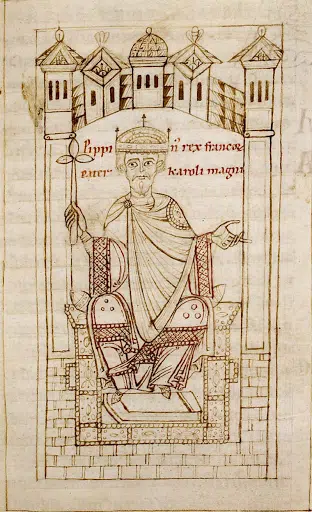 Pippi n᾽ rex francoꝝ
pater karoli magni